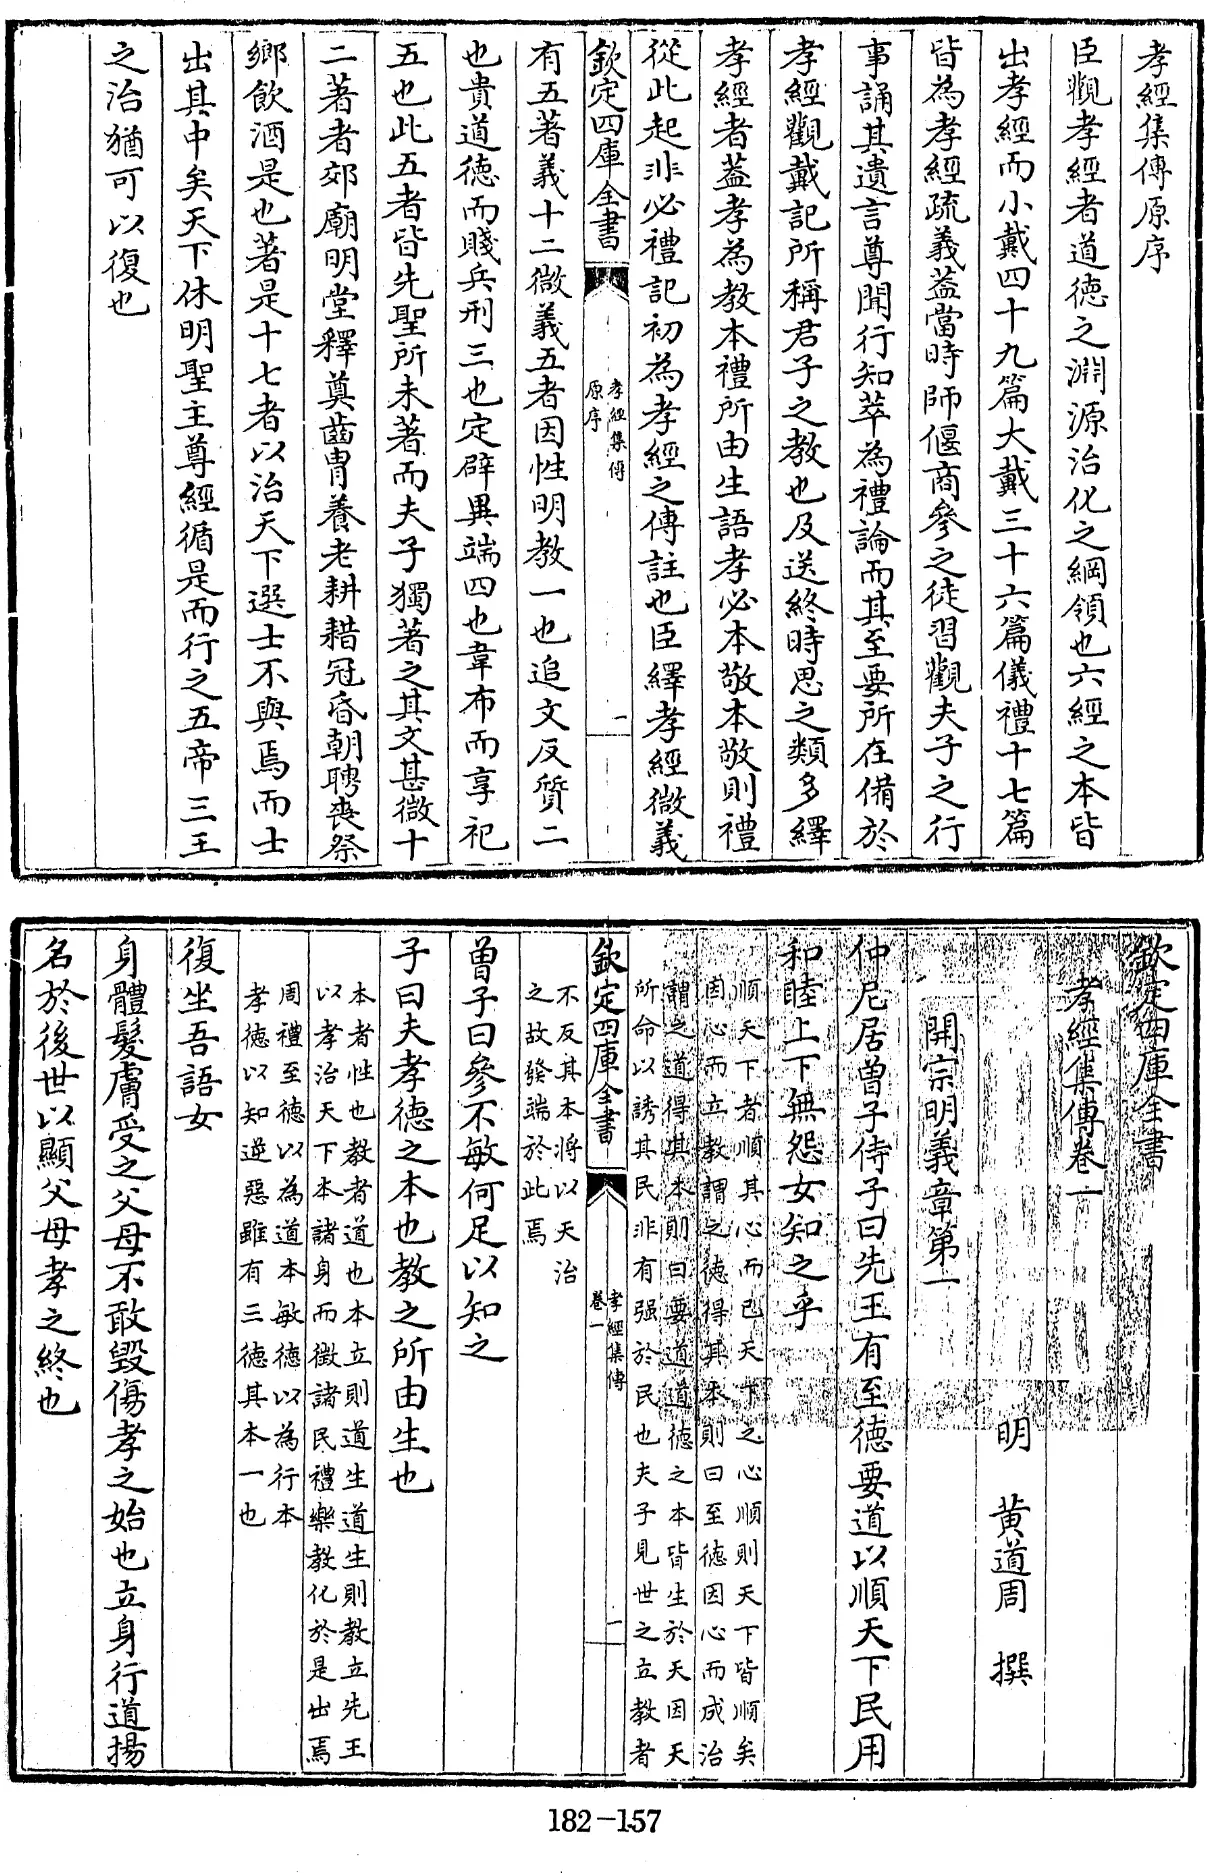 孝經集傳原序
臣觀孝經者道德之淵源治化之綱領也六經之本皆
出孝經而小戴四十九篇大戴三十六篇儀禮十七篇
皆為孝經疏義蓋當時師偃商參之徒習觀夫子之行
事誦其遺言尊聞行知萃為禮論而其至要所在備於
孝經觀戴記所稱君子之教也及送終時思之類多繹
孝經者蓋孝為教本禮所由生語孝必本敬本敬則禮
從此起非必禮記初為孝經之傳註也臣繹孝經微義
欽定四庫全書
孝經集傳
原序
一
有五著義十二微義五者因性明教一也追文反質二
也貴道德而賤兵刑三也定辟異端四也韋布而享祀
五也此五者皆先聖所未著而夫子獨著之其文甚微十
二著者郊廟明堂釋奠齒胄養老耕耤冠昏朝聘喪祭
鄉飲酒是也著是十七者以治天下選士不與焉而士
出其中矣天下休明聖主尊經循是而行之五帝三王
之治猶可以復也
欽定四庫全書
孝經集傳卷一
明 黃道周 撰
開宗明義章第一
仲尼居曾子侍子曰先王有至德要道以順天下民用
和睦上下無怨女知之乎
順天下者順其心而已天下之心順則天下皆順矣
因心而立教謂之德得其本則曰至德因心而成治
謂之道得其本則曰要道道德之本皆生於天因天
所命以誘其民非有强於民也夫子見世之立教者
欽定四庫全書
孝經集傳
卷一
一
不反其本將以天治
之故發端於此焉
曾子曰參不敏何足以知之
子曰夫孝德之本也教之所由生也
本者性也教者道也本立則道生道生則教立先王
以孝治天下本諸身而徵諸民禮樂教化於是出焉
周禮至德以為道本敏德以為行本
孝德以知逆惡雖有三德其本一也
復坐吾語女
身體髮膚受之父母不敢毀傷孝之始也立身行道揚
名於後世以顯父母孝之終也
182-157